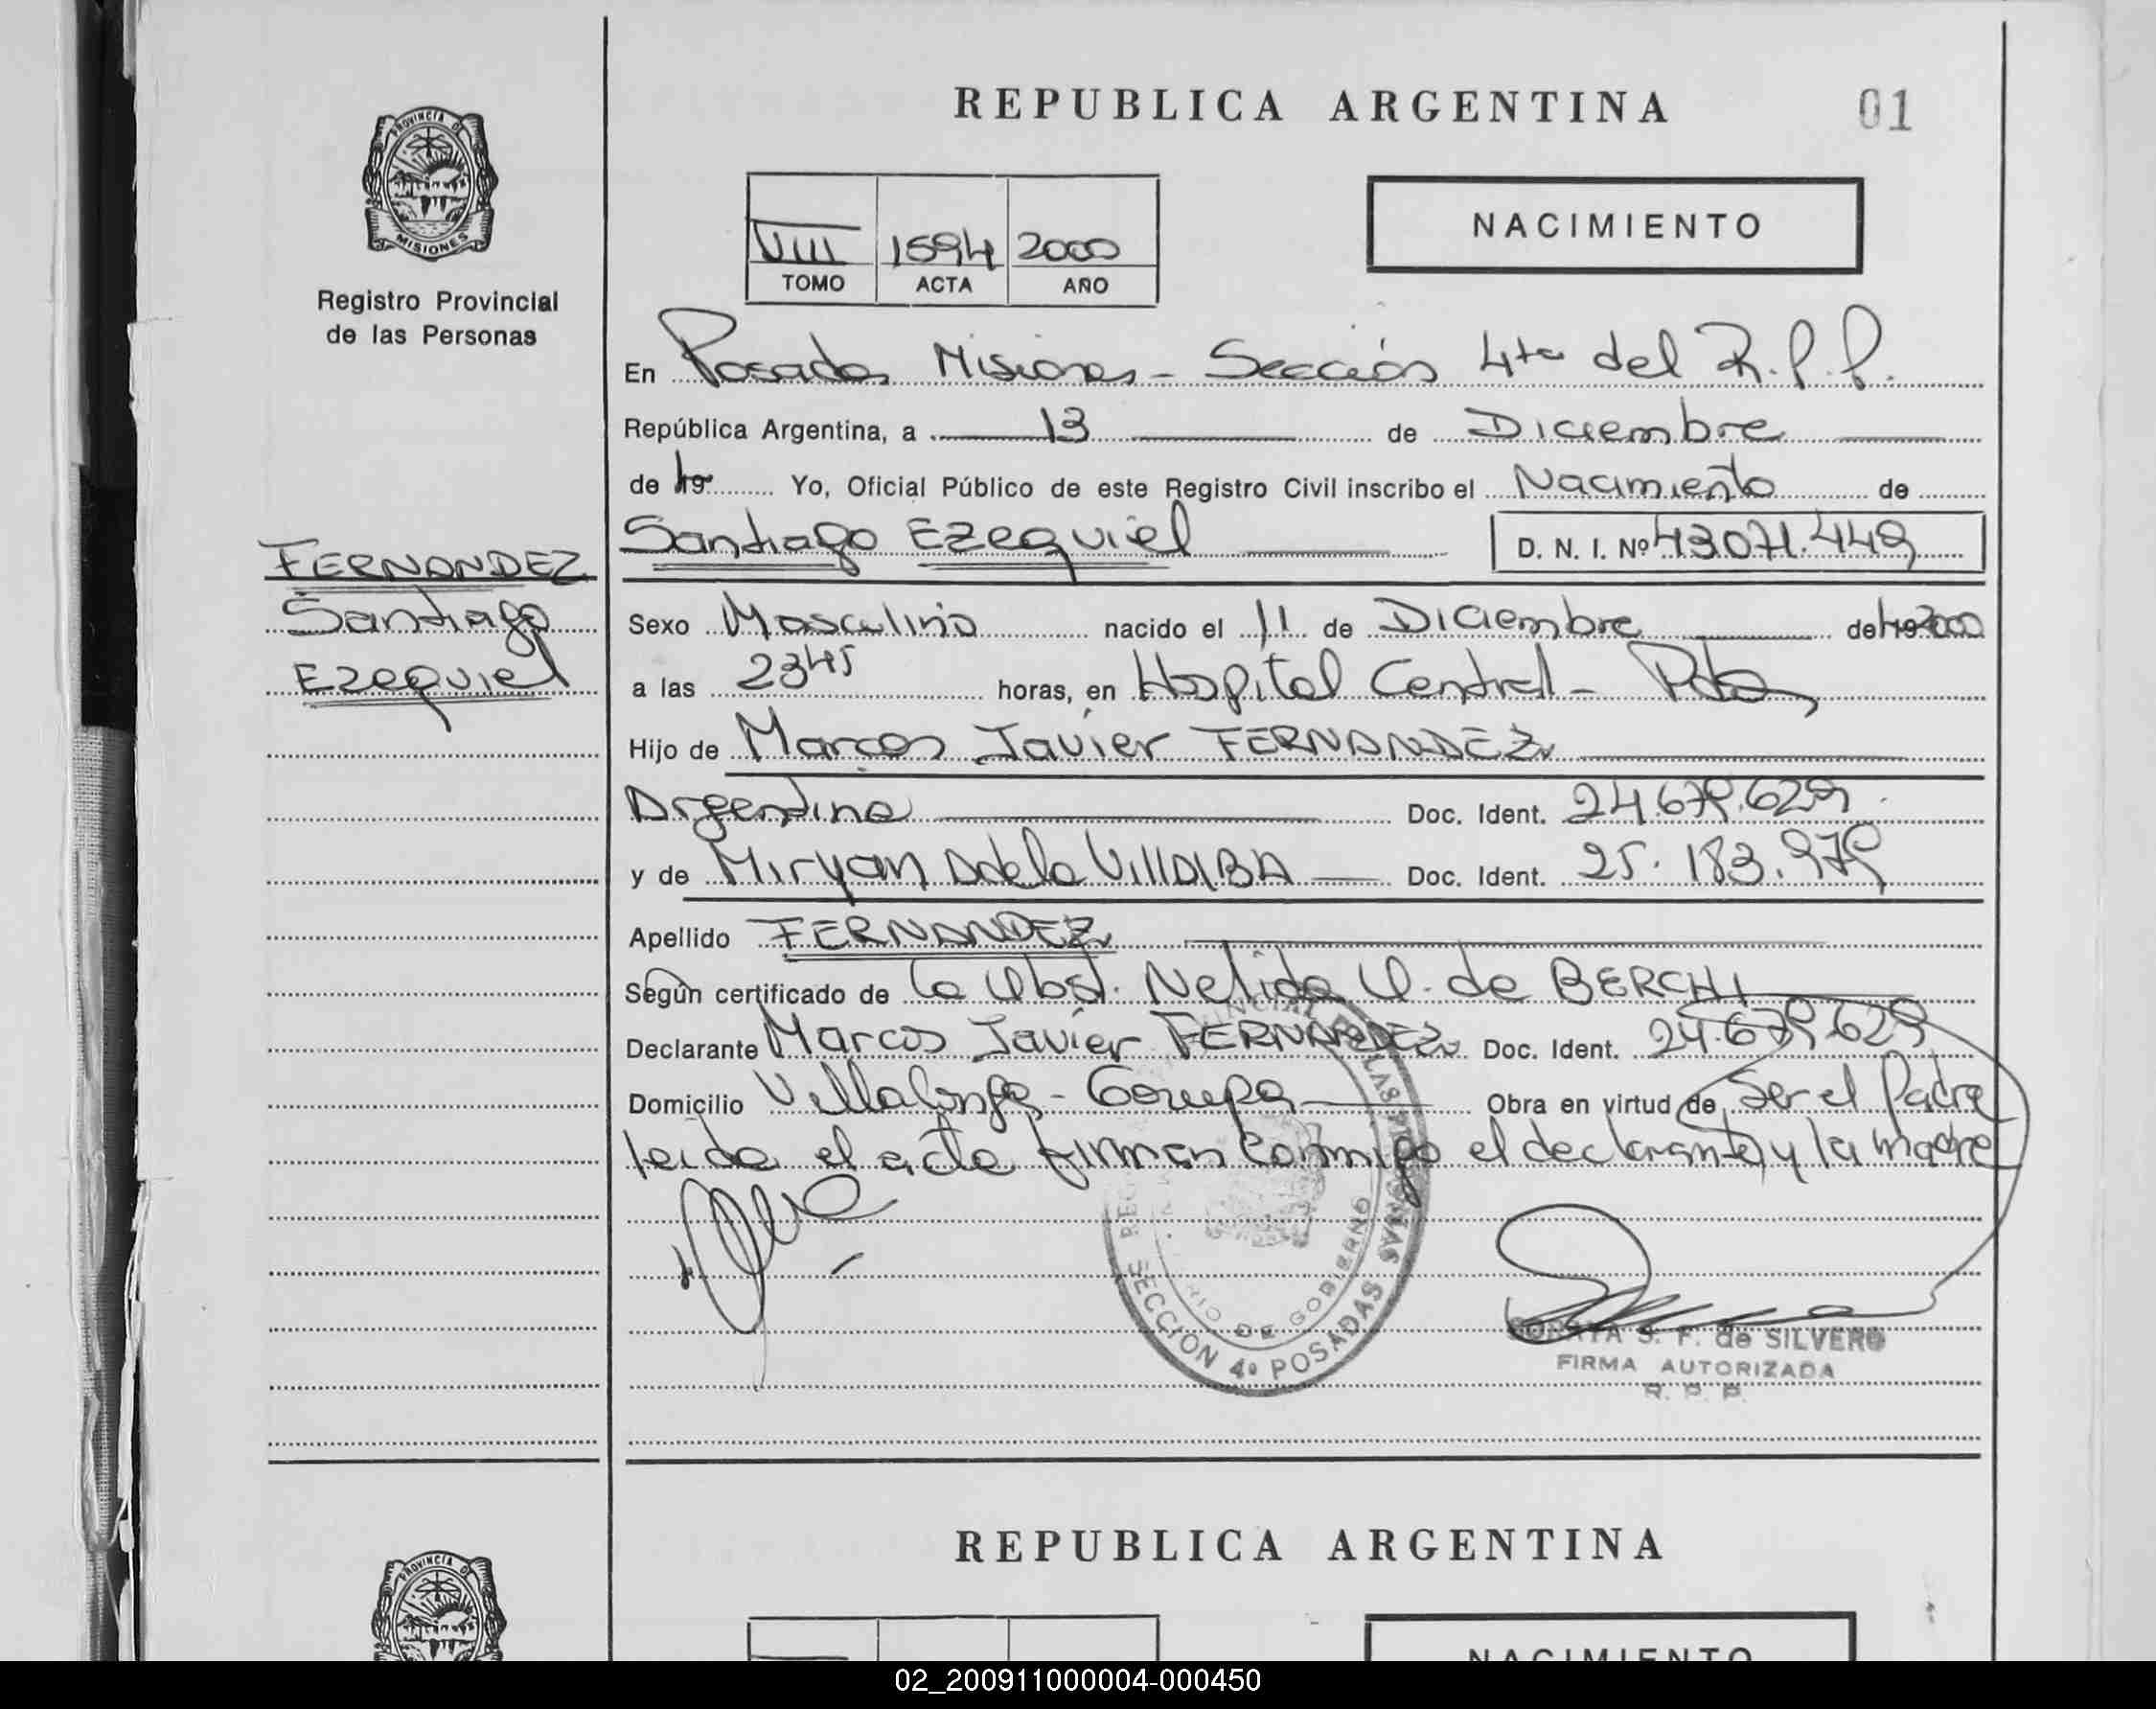 PROVINCIA DE
MISIONES
Registro Provincial
de las Personas
FERNANDEZ
Santiago
Ezequiel
REPUBLICA ARGENTINA
01
VIII 1594 2000
TOMO ACTA AÑO
NACIMIENTO
En Posadas Misiones - Sección 4ta del R.P.P.
República Argentina, a 13 de Diciembre
de 19 Yo, Oficial Público de este Registro Civil inscribo el Nacimiento de
Santiago Ezequiel D. N. I. Nº 43.071.449
Sexo Masculino nacido el 11 de Diciembre de 19 2000
a las 23 45 horas, en Hospital Central - Pdas
Hijo de Marcos Javier FERNANDEZ
Argentina Doc. Ident. 24.679.629
y de Miryan Adela VillALBA Doc. Ident. 25.183.979
Apellido FERNANDEZ
Según certificado de la Obst. Nelida O. de BERCHI
Declarante Marcos Javier FERNANDEZ Doc. Ident. 24.679.629
Domicilio Villalonga - Garupa Obra en virtud de Ser el Padre
leida el acta firman conmigo el declarante y la madre
SECCION 4ª POSADAS
DE GOBIERNO
S. F. de SILVERO
FIRMA AUTORIZADA
R. P. P.
REPUBLICA ARGENTINA
PROVINCIA DE
NACIMIENTO
02_200911000004-000450